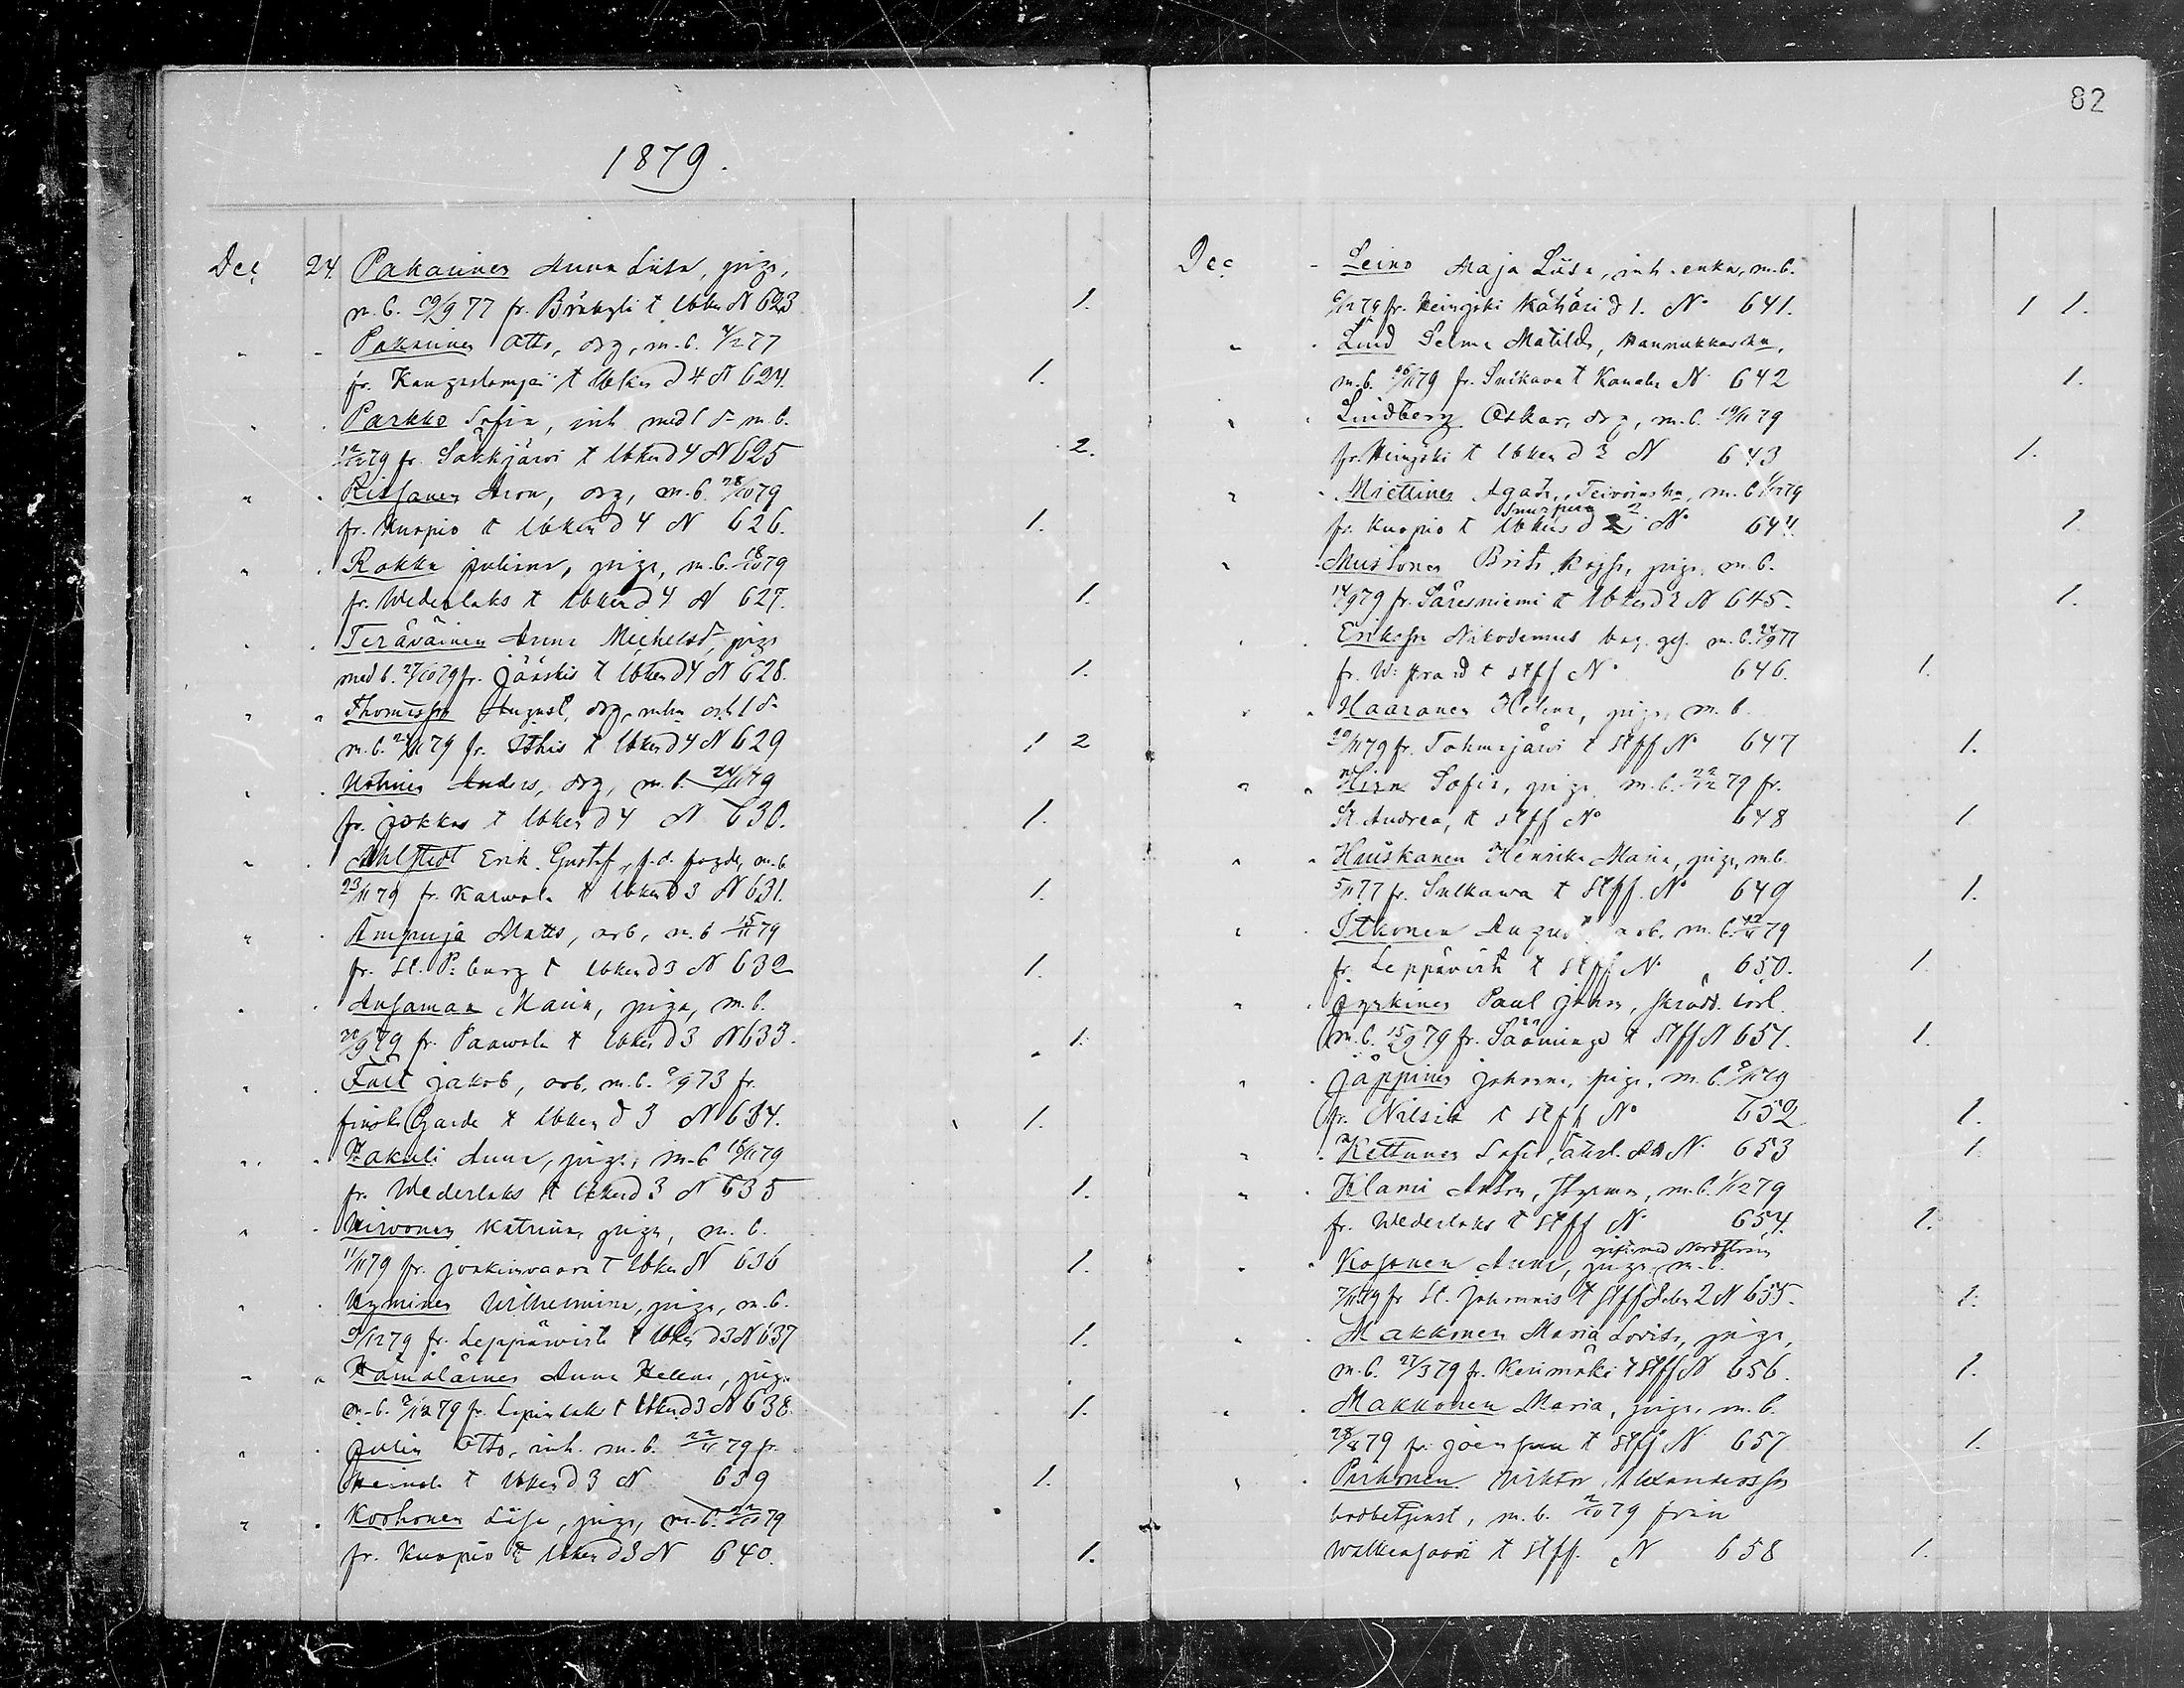 82
1879.
Dec 24. Pakarinen Anna Liisa, piga,
m. b. 29/9 77 fr. t lbken N 623 1.
" - Pakarinen Otto, drg, m. b. 77
fr. Kangaslampi t lbken d 4 N 624. 1.
" . Parkko Sofia, inh med 1 d- m. b.
12/12 79 fr. Säkkjärvi t lbken d 4 N 625 2.
" . Rissanen Aron, drg, m. b. 28/10 79
fr. Kuopio t lbken d 4 N 626. 1.
" . Rokka Juliana, piga, m. b. 18/10 79
fr. Wederlaks t lbken d 4 N 627. 1.
" . Teräväinen Anna Michelsd-, piga
med b. 27/10 79 fr. Jääskis t lbken d 4 N 628. 1.
" " Thomasson August, drg, och 1 d-
m. b. 24/11 79 fr. t lbken d 4 N 629 1 2
" . Anders, drg, m. b. 24/11 79
fr. Jokkas t lbken d 4 N 630. 1.
" . Ahlstedt Erik Gustaf, f. d. m. b.
23/11 79 fr. Karvola t lbken d 3 N 631. 1.
" . Ampuja Matts, arb, m. b. 15/11 79
fr. St. P:burg t lbken d 3 N 632 1.
" . Ansamaa Maria, piga, m. b.
22/9 79 fr. Paavola t lbken d 3 N 633. 1.
" . Fält Jakob, arb, m. b. 9/9 73 fr.
finska Garde t lbken d 3 N 634. 1.
" . Hakuli Anna, piga, m. b. 18/11 79
fr. Wederlaks t lbken d 3 N 635 1.
" . Hirvonen Katrina, piga, m. b.
11/11 79 fr. Joukiovaara t lbken N 636 1.
" . Hyminen Wilhelmina, piga, m. b.
9/12 79 fr. Leppävirta t lbken d 3 N 637 1.
" " Hämäläinen Anna Helena, piga
m. b. 2/12 79 fr. t lbken d 3 N 638. 1.
" . Julin Otto, inh. m. b. 22/11 79 fr.
Heinola t lbken d 3 N 639 1.
" . Korhonen Liisa, piga, m. b. 22/10 79
fr. Kuopio t lbken d 3 N 640. 1.
Dec - Leino Maja Liisa, inh. enka, m. b.
6/12 79 fr. Heinjoki Kähäri d 1. No 641. 1 1.
" . Lind Selma Matilda,
m. b. 26/11 79 fr. t N 642 1.
" . Lindberg Oskar, drg, m. b. 19/11 79
fr. Heinjoki t lbken d 2 N 643 1.
" . Miettinen Agata, m. b. 1/12 79
fr. Kuopio t lbken d 2 No 644. 1.
" . Mustonen Brita Kajsa, piga, m. b.
14/9 79 fr. Säresniemi t lbken d 2 N 645. 1.
" . Eriksson Nikodemus bag. ges. m. b. 24/9 77
fr. W:strand t stff No 646. 1.
" " Haaranen Helena, piga, m. b.
20/11 79 fr. Tohmajärvi t stff No 647 1.
" " Hirn Sofia, piga, m. b. 22/12 79 fr.
St. Andrea, t stff No 648 1
" " Huiskanen Henrika Maria, piga, m. b.
5/11 77 fr. Sulkava t Stff. No 649 1.
" . Itkonen August, arb. m. b. 12/11 79
fr. Leppävirta t Stff N. 650. 1.
" . Jyrkinen Paul Johan, skrädd. lärl.
m. b. 15/9 79 fr. Säämingi t Stff N 651. 1.
" . Jäppinen Johanna, piga, m. b. 9/11 79
fr. Nilsiä t Stff No 652 1.
" . Kettunen Sofia, N 653 1.
" . Kilami Anton, Styrman, m. b. 1/12 79
fr. Wederlaks t Stff N. 654. 1.
" " Kosonen Anna, piga m. b. gift med Nordström
7/11 79 fr St. Johannis t Stff 2 N 655. 1.
" . Makkonen Maria Lovisa, piga,
m. b. 27/3 79 fr. Kerimäki t Stff N 656. 1.
" . Makkonen Maria, piga, m. b.
28/8 79 fr. Joensuu t Stff N 657 1.
" . Parkonen Wiktor Alexandersson
bodbetjent, m. b. 2/10 79 från
Walkeasaari t Stff. N 658 1.